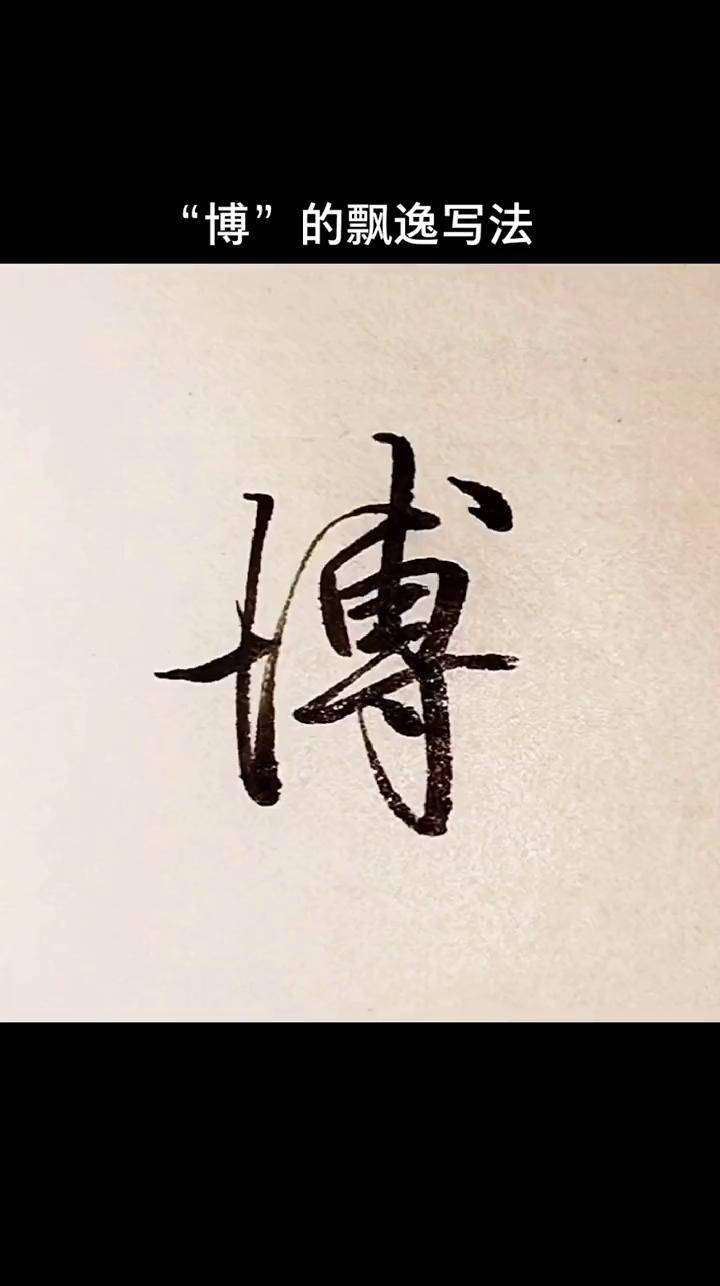 “博”的飘逸写法
博